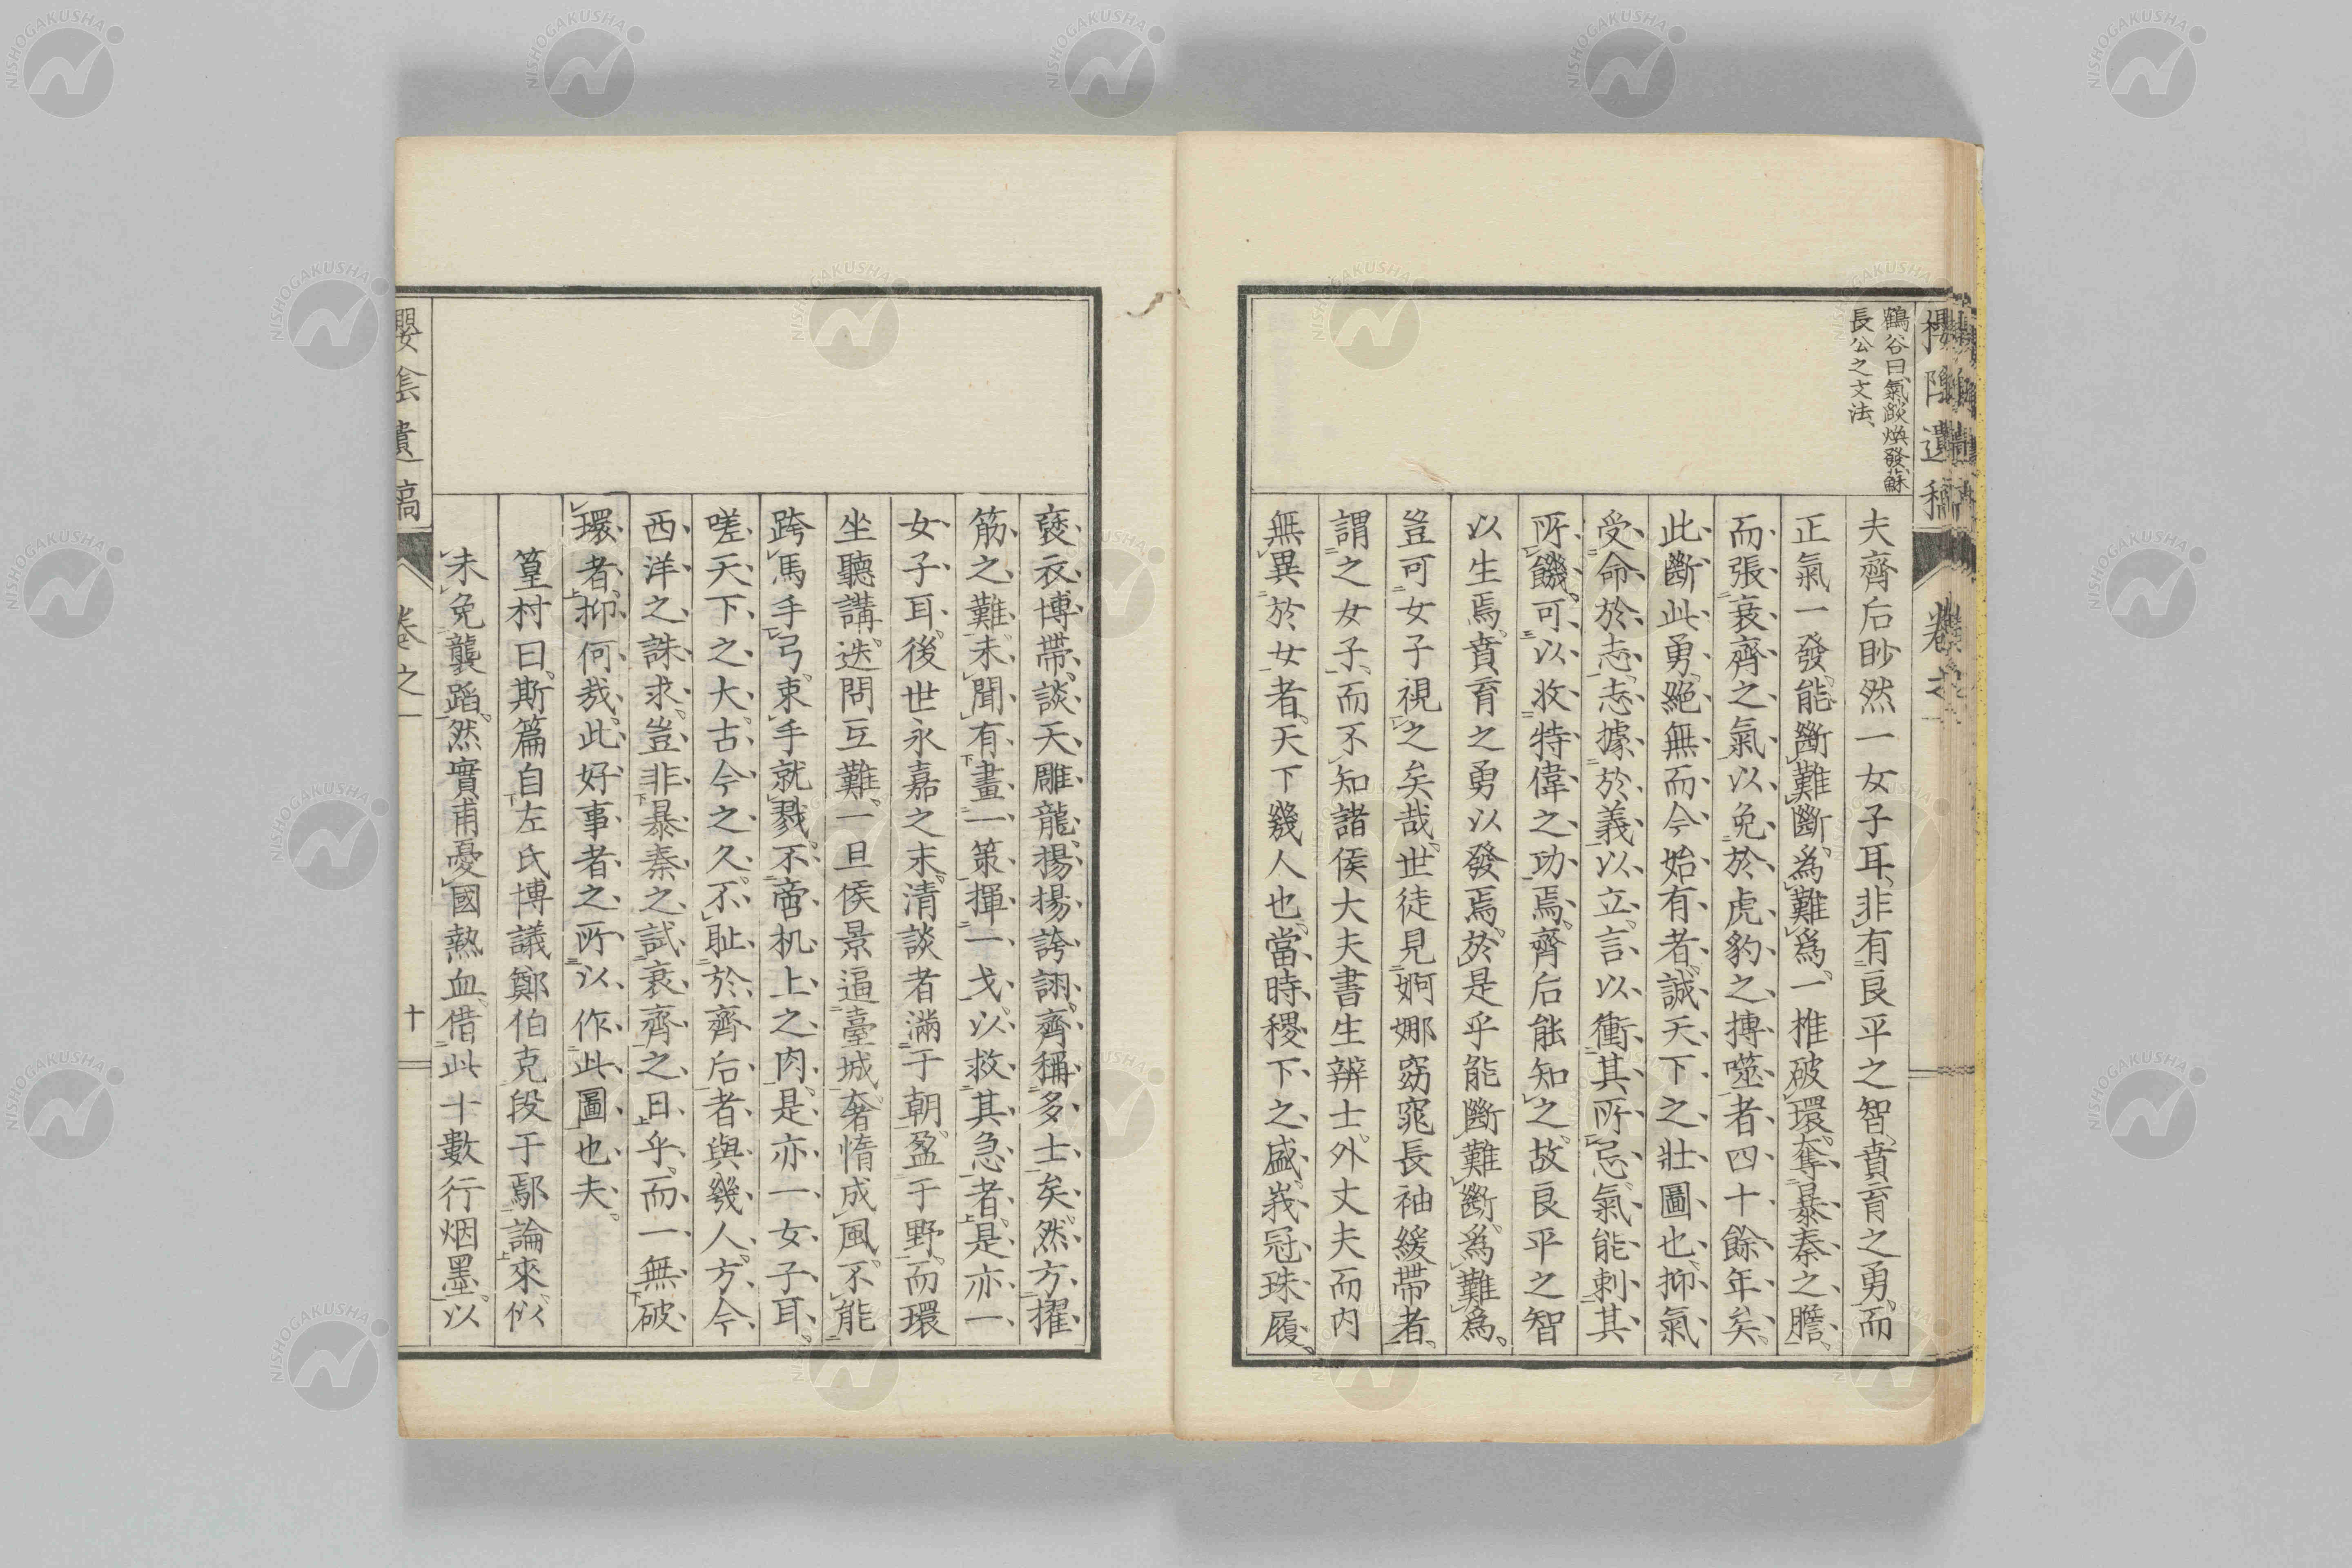 鶴谷曰、氣燄煥發、蘇
長公之文法、
夫齊后眇然一女子耳、非有良平之智、賁育之勇、而
正氣一發、能斷難斷、爲難爲、一椎破環、奪暴秦之膽、
而張衰齊之氣、以免於虎豹之搏噬者、四十餘年矣、
此斷此勇、絕無而今始有者、誠天下之壯圖也、抑氣
受命於志、志據於義、以立言、以衝其所忌、氣能剌其
所饑、可以收特偉之功焉。齊后能知之、故良平之智
以生焉。賁育之勇以發焉。於是乎能斷難斷。爲難爲。
豈可女子視之矣哉。世徒見婀娜窈窕長袖緩帶者、
謂之女子、而不知諸侯大夫書生辨士。外丈夫而内
無異於女者。天下幾人也。當時稷下之盛、峩冠珠履、
褒衣博帶、談天雕龍、揚揚誇詡。齊稱多士矣、然方擢
筋之難、未聞有畫一策、揮一戈、以救其急者、是亦一
女子耳、後世永嘉之末。清談者滿于朝、盈于野、而環
坐聽講、迭問互難、一旦侯景逼臺城、奢惰成風、不能
跨馬手弓、束手就戮、不啻机上之肉、是亦一女子耳。
嗟天下之大、古今之久、不耻於齊后者、與幾人。方今
西洋之誅求、豈非暴秦之試衰齊之日乎、而一無破
環者、抑何哉、此好事者之所以作此圖也夫。
篁村曰。斯篇自左氏博議鄭伯克段于鄢論來。似
未免襲蹈。然實甫憂國熱血。借此十數行烟墨。以
櫻陰遺稿
卷之一
十
NISHOGAKUSHA